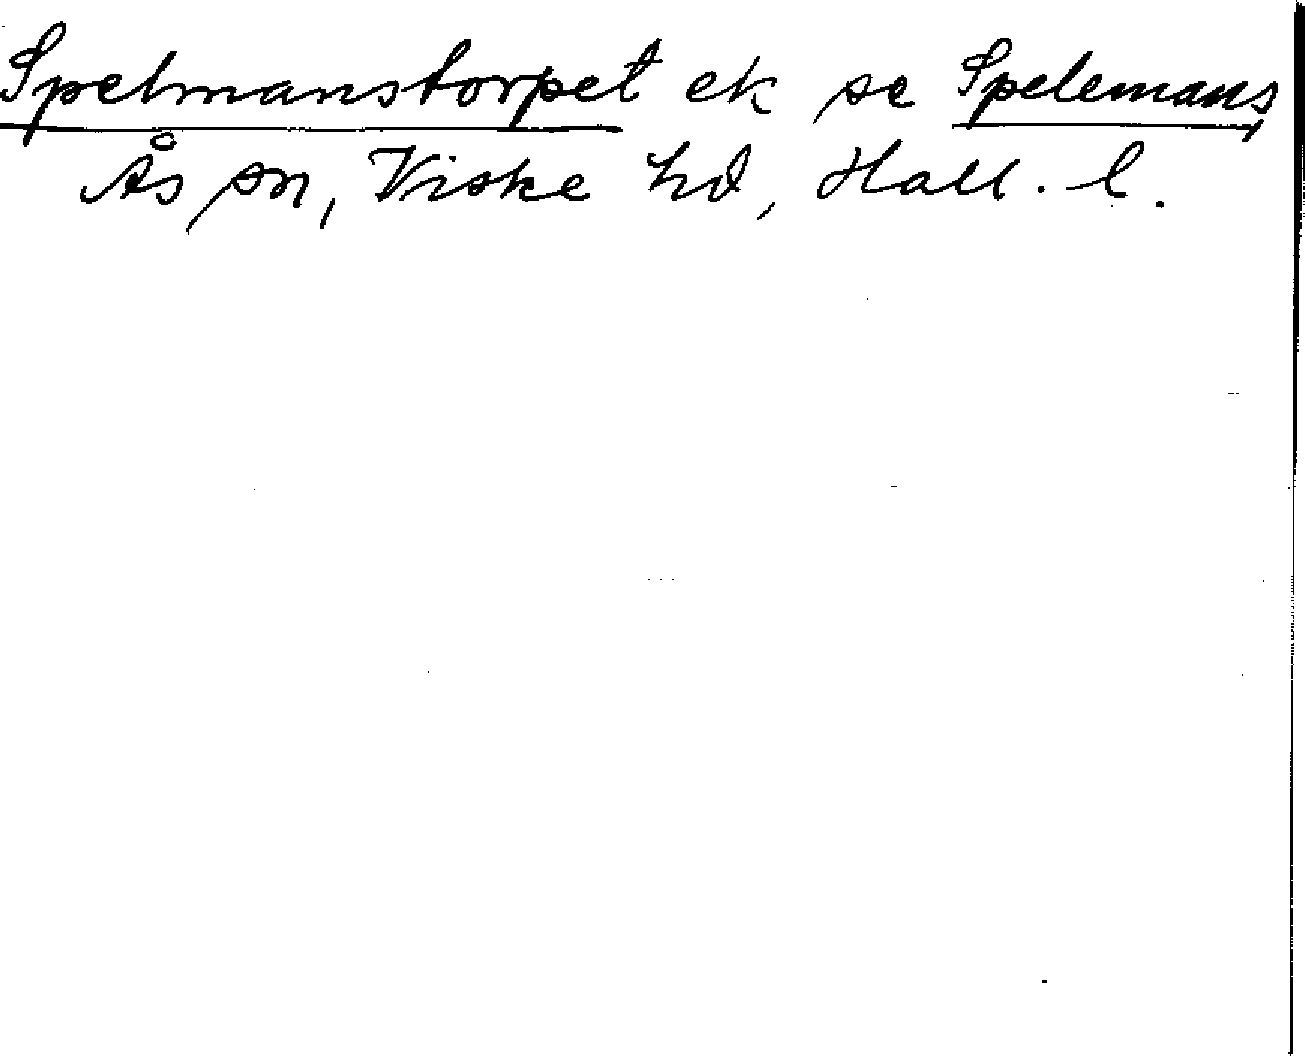 Spelmanstorpet ek se Spelemans,
Ås sn, Viske hd, Hall. l.